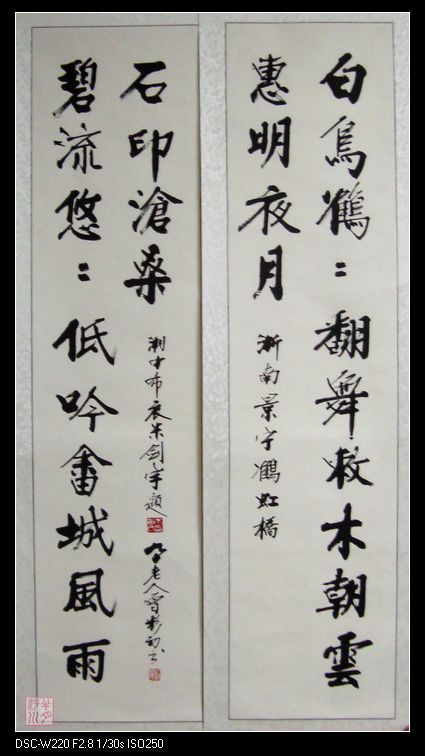 白鳥鶴〻翻舞敕木朝雲
惠明夜月
浙南景宁鶴虹橋
碧流悠〻低吟畬城風雨
石印滄桑
布衣朱劍宇題
老人
DSC-W220 F2.8 1/30s ISO250